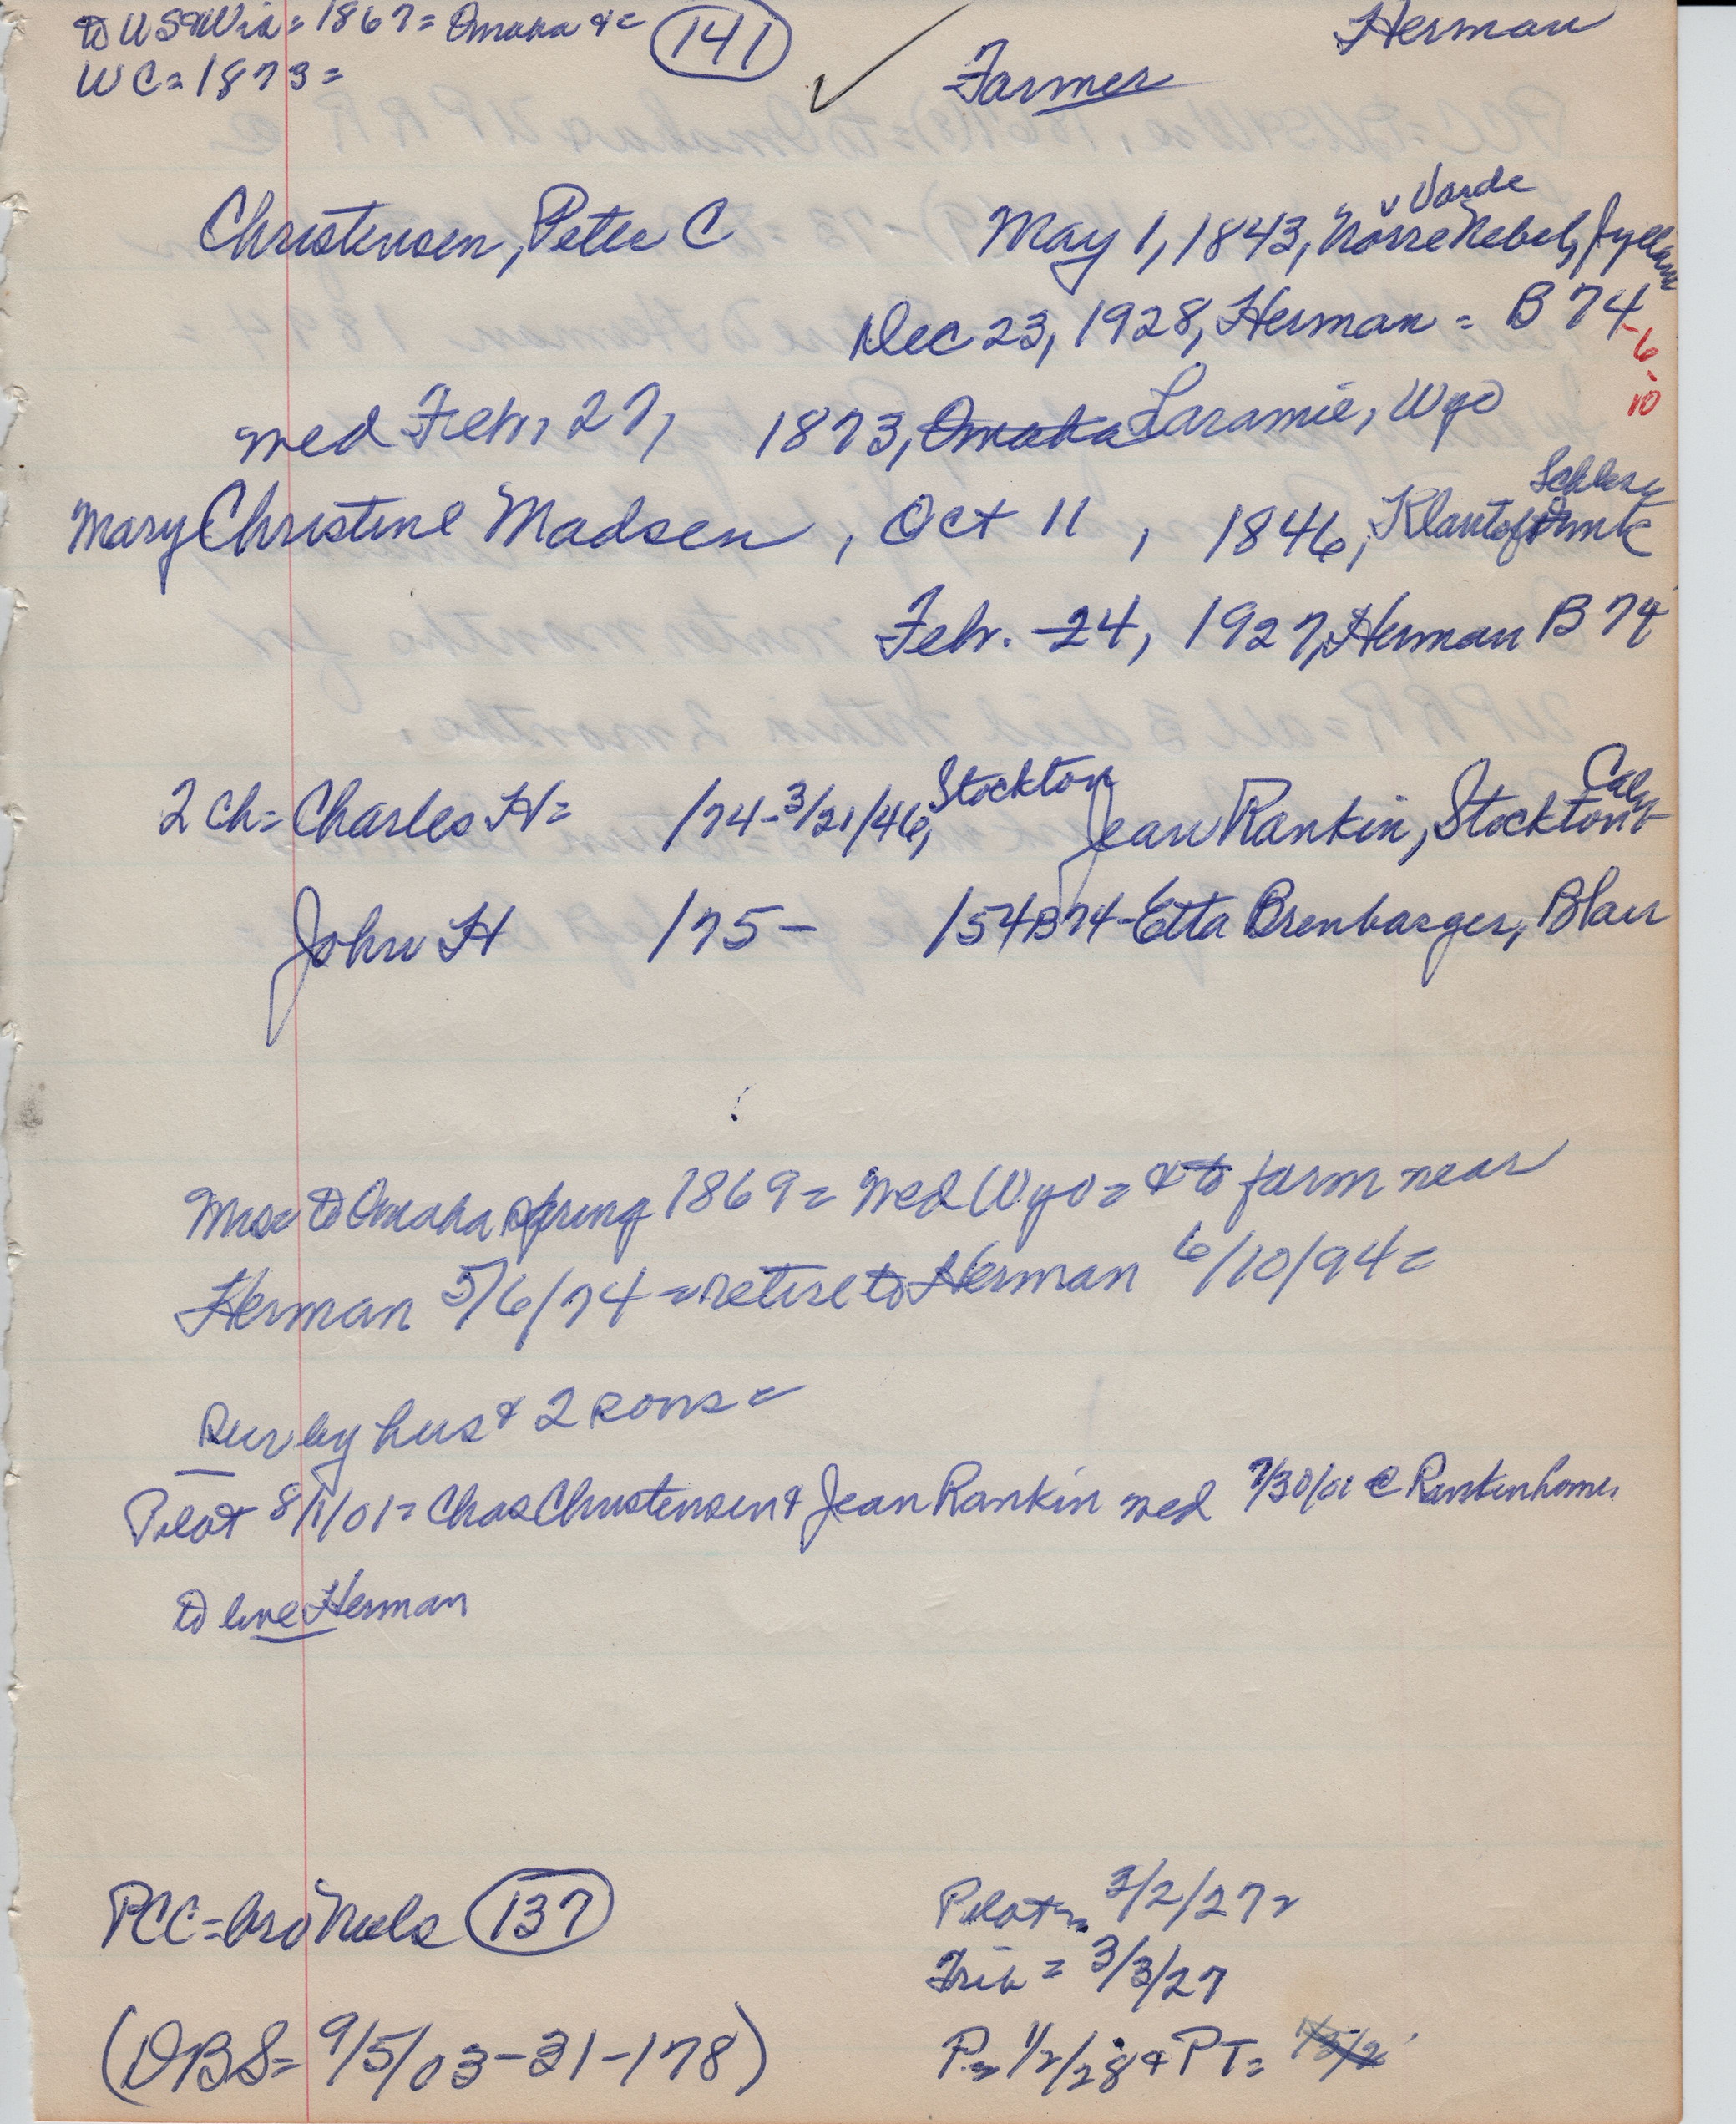 to US & Wis = 1867 = Omaha & =
WC = 1873 =
141
Herman
Farmer
Varde
Christensen, Peter C May 1, 1843, Nörre Nebel, Jylland
Dec 23, 1928, Herman = B 74-6-10
med Febr, 27, 1873, Omaha Laramie, Wyo
Schlesw
Mary Christine Madsen, Oct 11, 1846,
Febr. 24, 1927, Herman B 74
Calif
2 ch = Charles H = /74-3/21/46, Stockton Jean Rankin, Stockton
John H /75 - /54 B 74 - Etta Brenbarger, Blair
Mrs = to Omaha spring 1869 = med Wyo = & to farm near
Herman 5/6/74 = retire to Herman 6/10/94 =
Sur by hus & 2 sons =
Pilot 8/1/01 = Chas Christensen & Jean Rankin med 7/30/01 @ Rankin home,
to live Herman
PCC = bro Nels 137
Pilot = 3/2/27 =
Trib = 3/3/27
(DBS = 9/5/03-31-178)
P = 1/2/28 & PT =